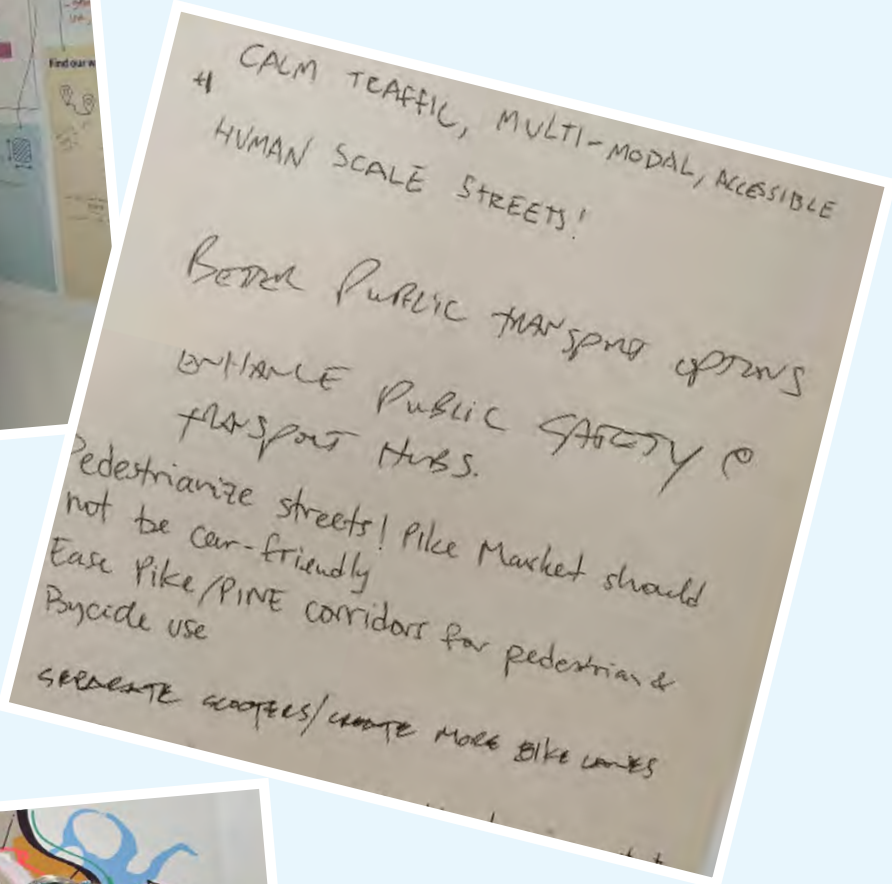 Find our w
CALM TRAFFIC, MULTI-MODAL, ACCESSIBLE
HUMAN SCALE STREETS!
BETTER PUBLIC TRANSPORT OPTIONS
ENHANCE PUBLIC SAFETY @
TRANSPORT HUBS.
Pedestrianize streets! Pike Market should
not be car-friendly
Ease Pike/PINE corridors for pedestrian &
Bycicle use
SEPARATE SCOOTERS/CREATE MORE BIKE LANES